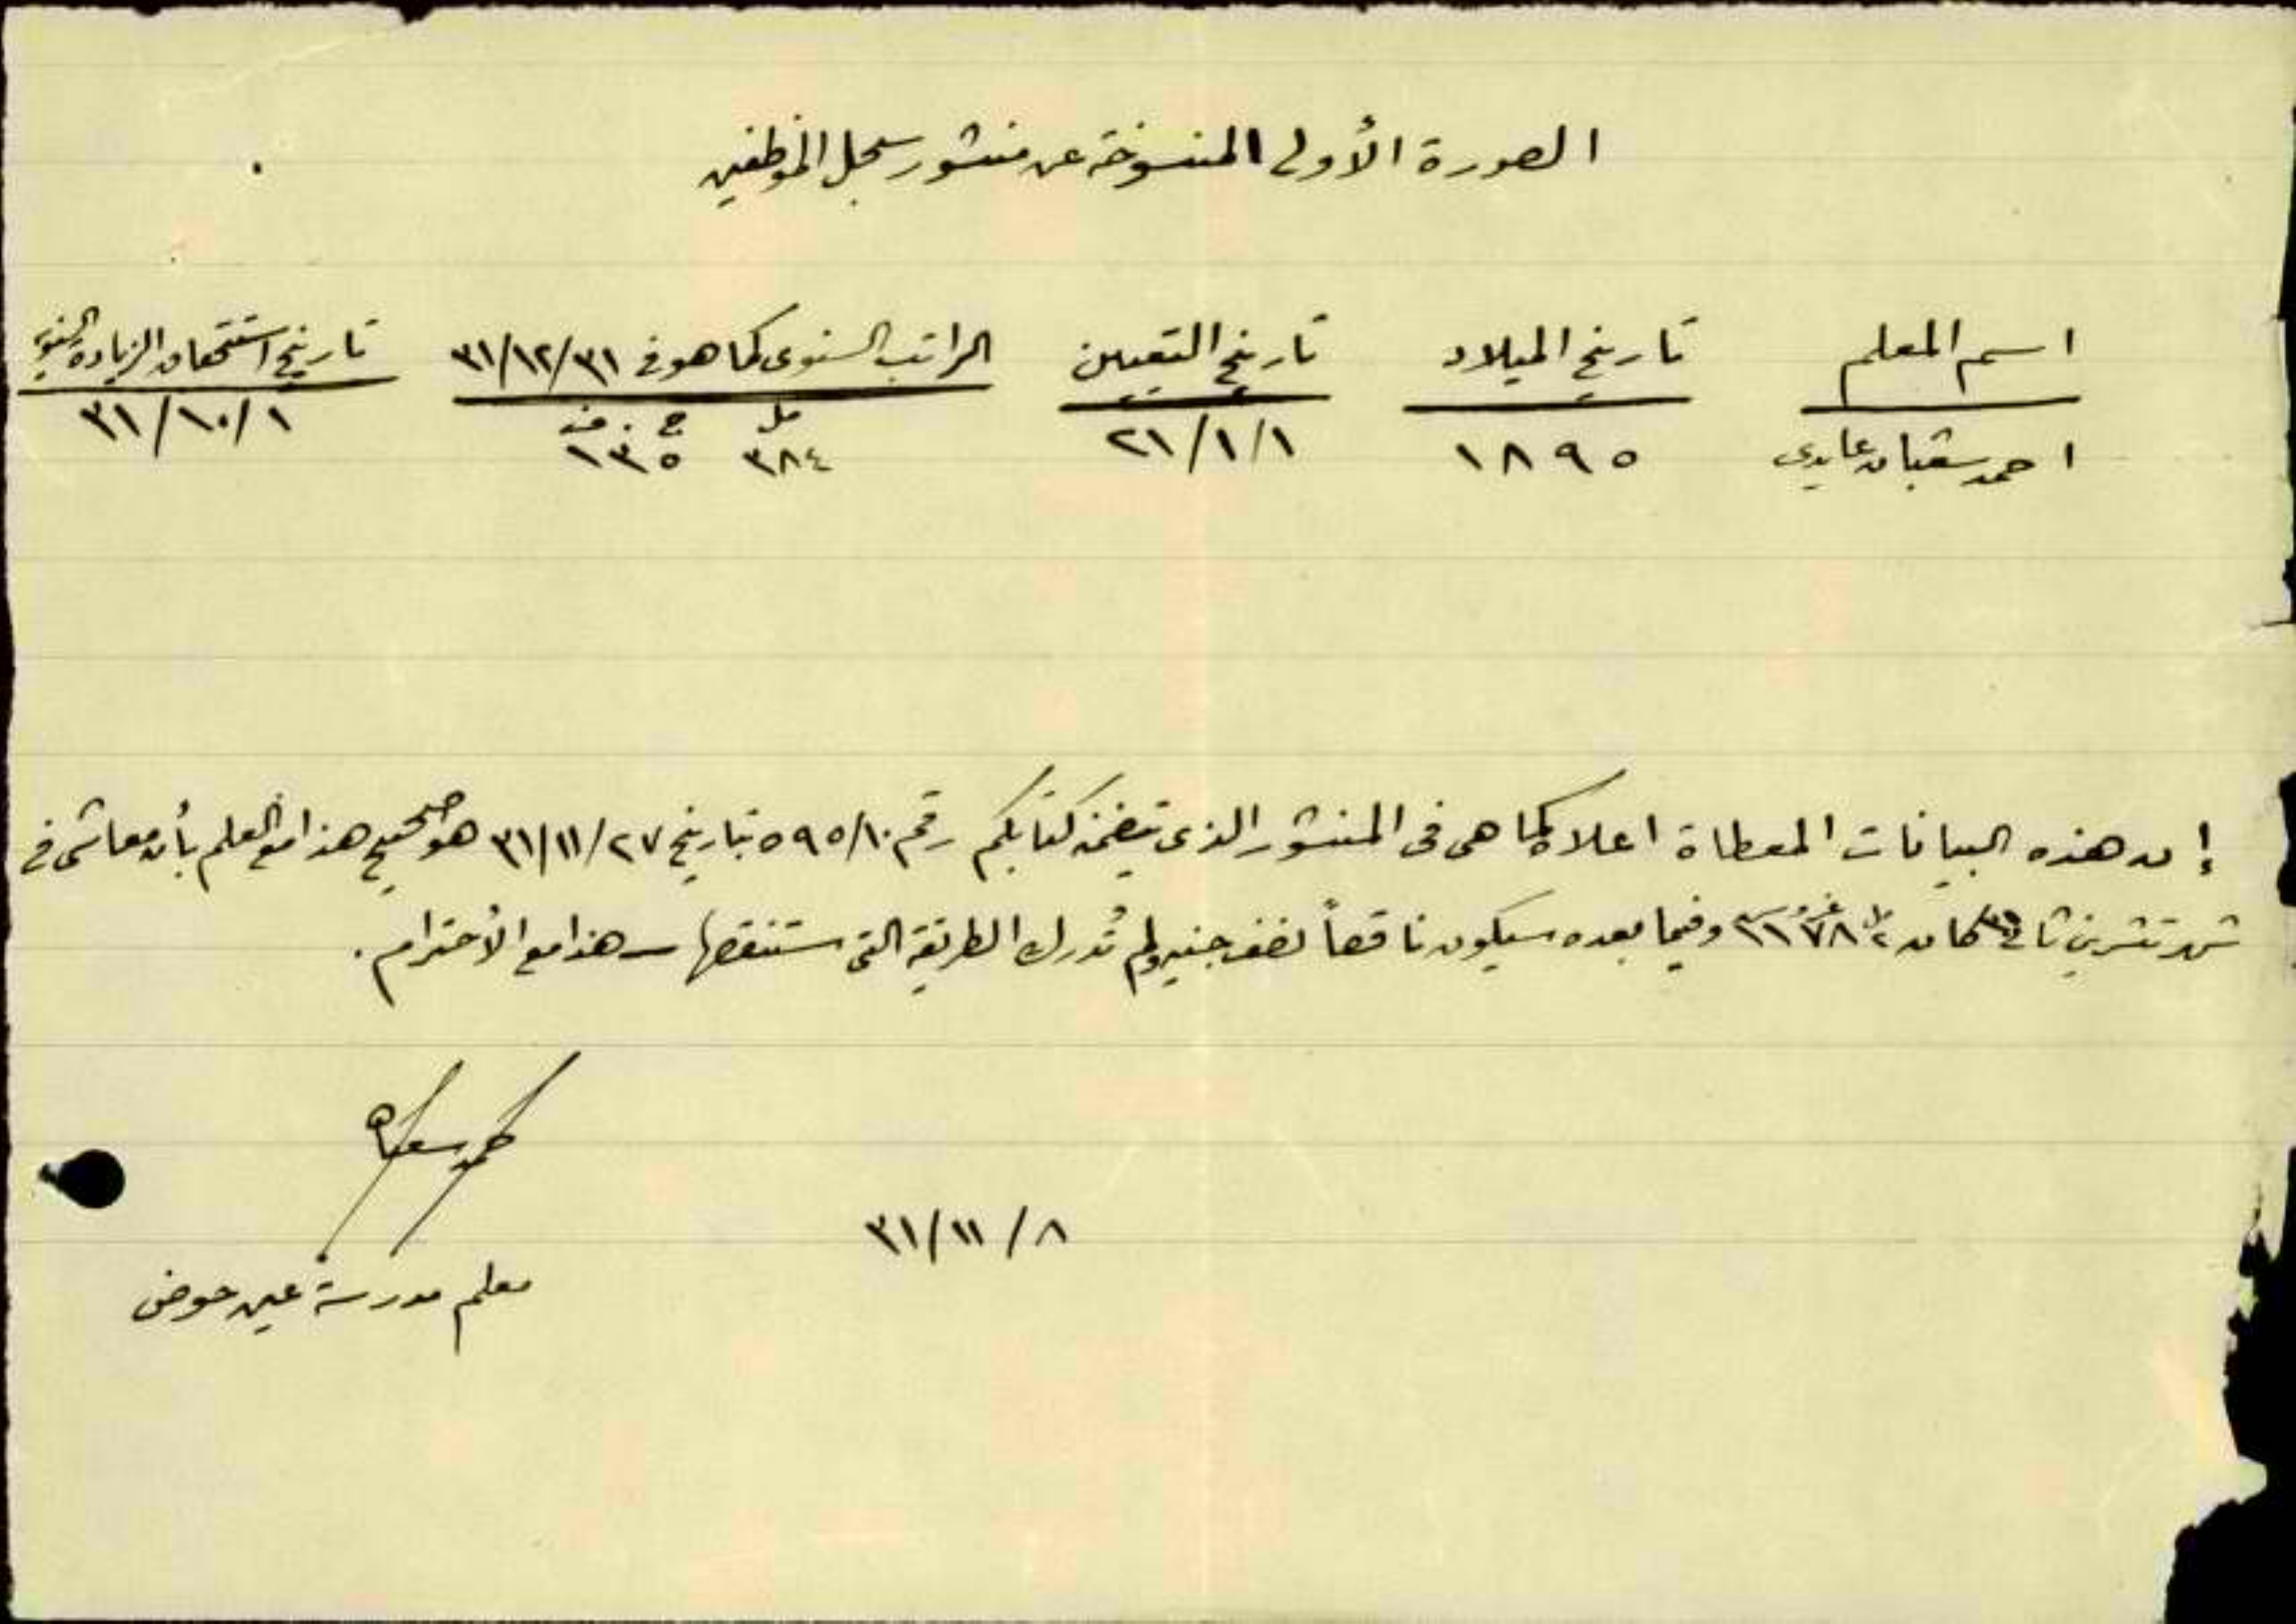 الصورة الأولى المنسوخة عن منشور سجل الموظفين
اسم المعلم تاريخ الميلاد تاريخ التعيين الراتب السنوي كما هو في ٣١/١٢/٣١ تاريخ استحقاق الزيادة السنوية
مل ج
احمد شعبان عايدي ١٨٩٥ ٢١/١/١ ٣٨٤ ١٣٥ ٣١/١٠/١
إن هذه البيانات المعطاة اعلاه كما هي في المنشور الذي تضمنه كتابكم رقم ٥٩٥/١٠ بتاريخ ٣١/١١/٢٧ هو صحيح هذا مع العلم بأن معاشي في
شهر تشرين ثاني كان وفيما بعده سيكون ناقصاً نصف جنيه ولم تُدرك الطريقة التي ستنقصها - هذا مع الأحترام.
احمد شعبان
٣١/١١/٨
معلم مدرسة عين حوض